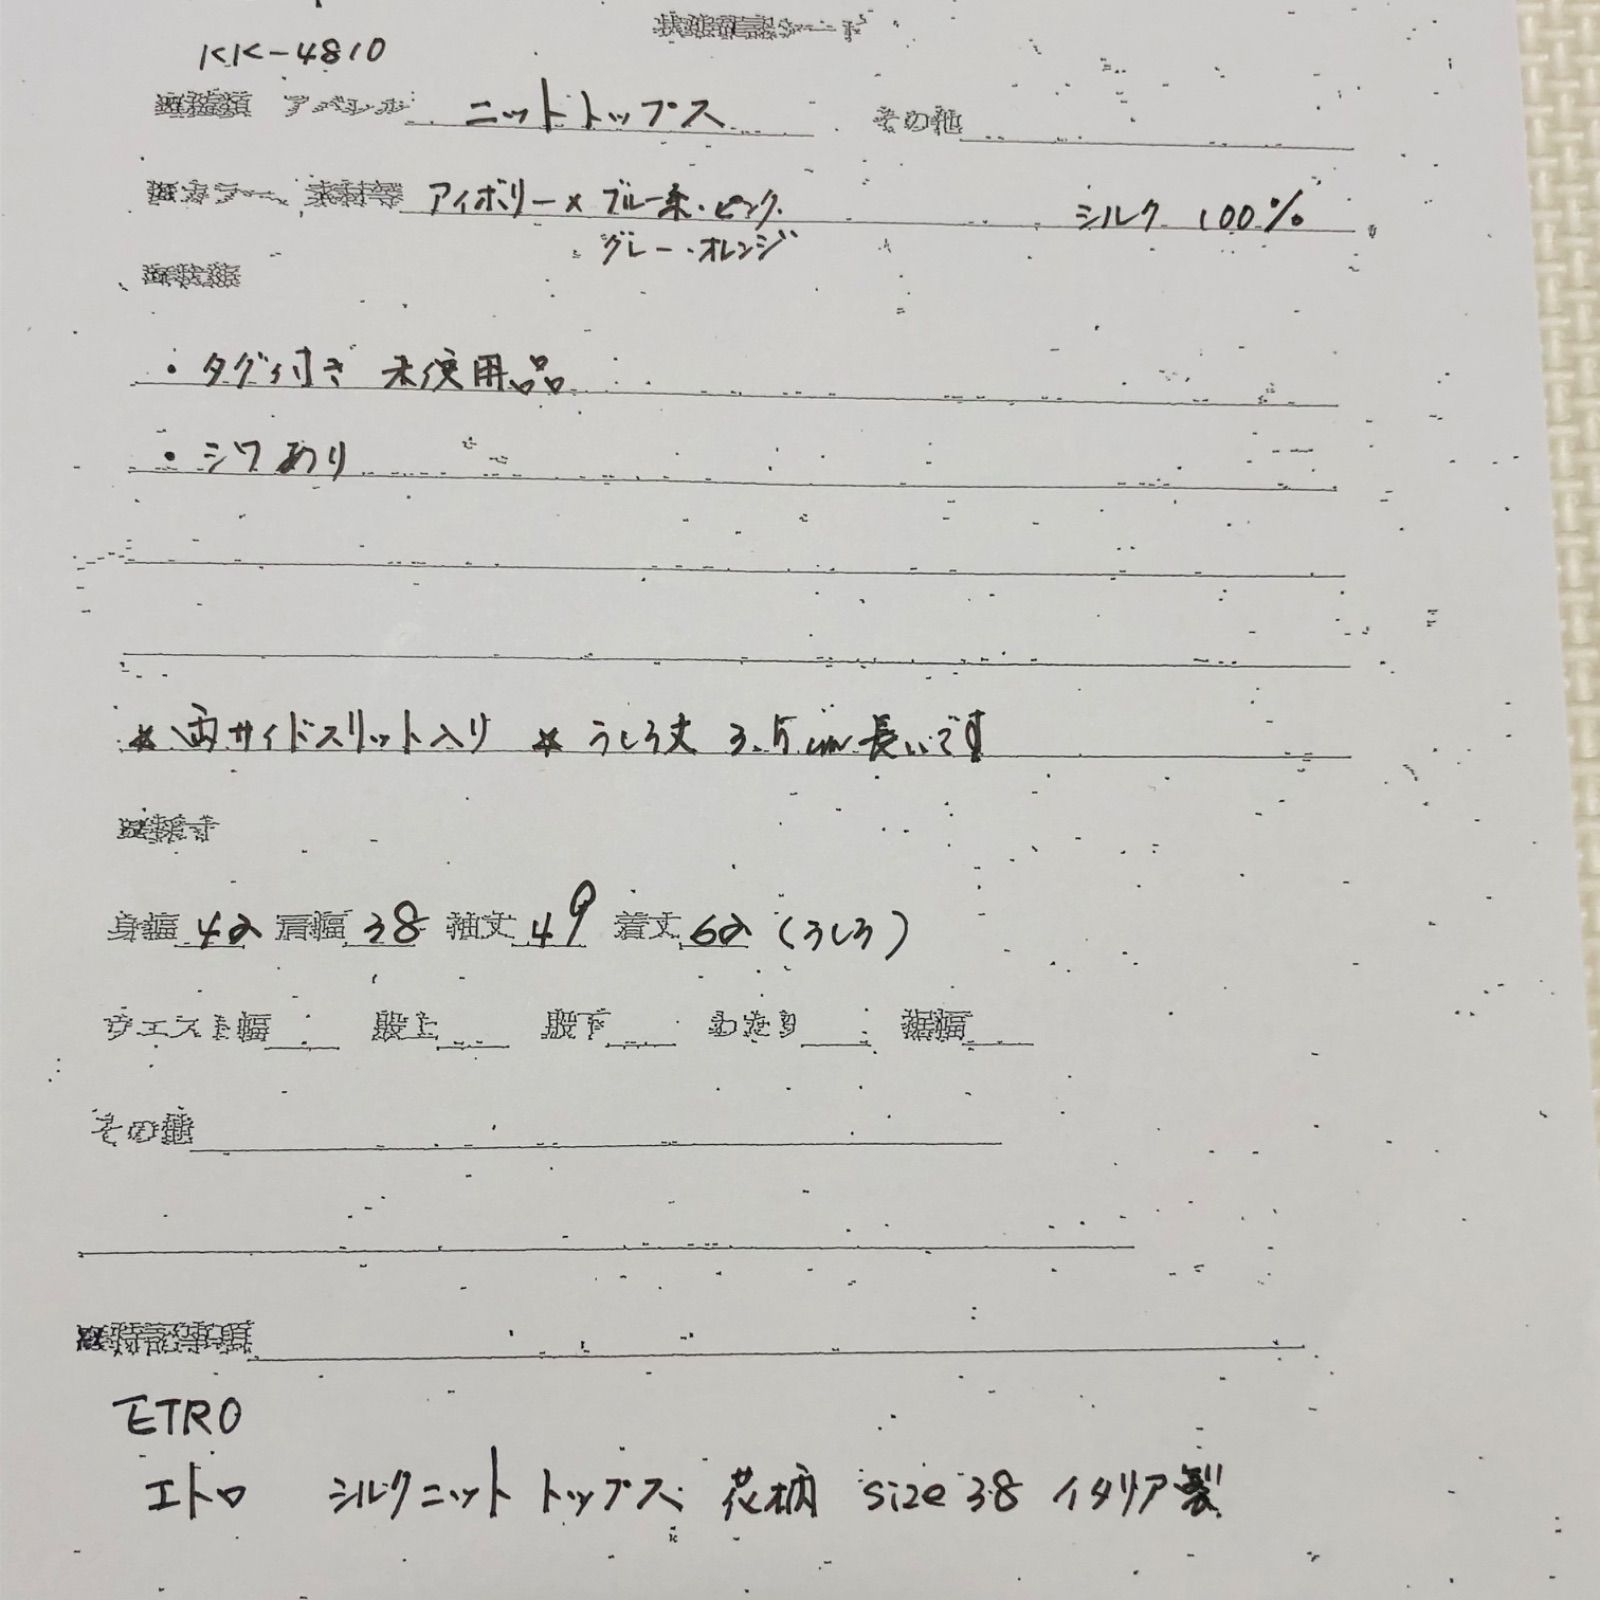 状態確認シート
KK-4810
■種類 アパレル ニットトップス その他
■カラー、素材等 アイボリー×ブルー系・ピンク シルク 100%
グレー・オレンジ
■状態
・タグ付き 未使用品
・シワあり
＊両サイドスリット入り ＊うしろ丈 3.5cm長いです
■採寸
身幅 42 肩幅 38 袖丈 49 着丈 62 (うしろ)
ウエスト幅 股上 股下 わたり 裾幅
その他
■特記事項
ETRO
エトロ シルクニット トップス 花柄 size 38 イタリア製